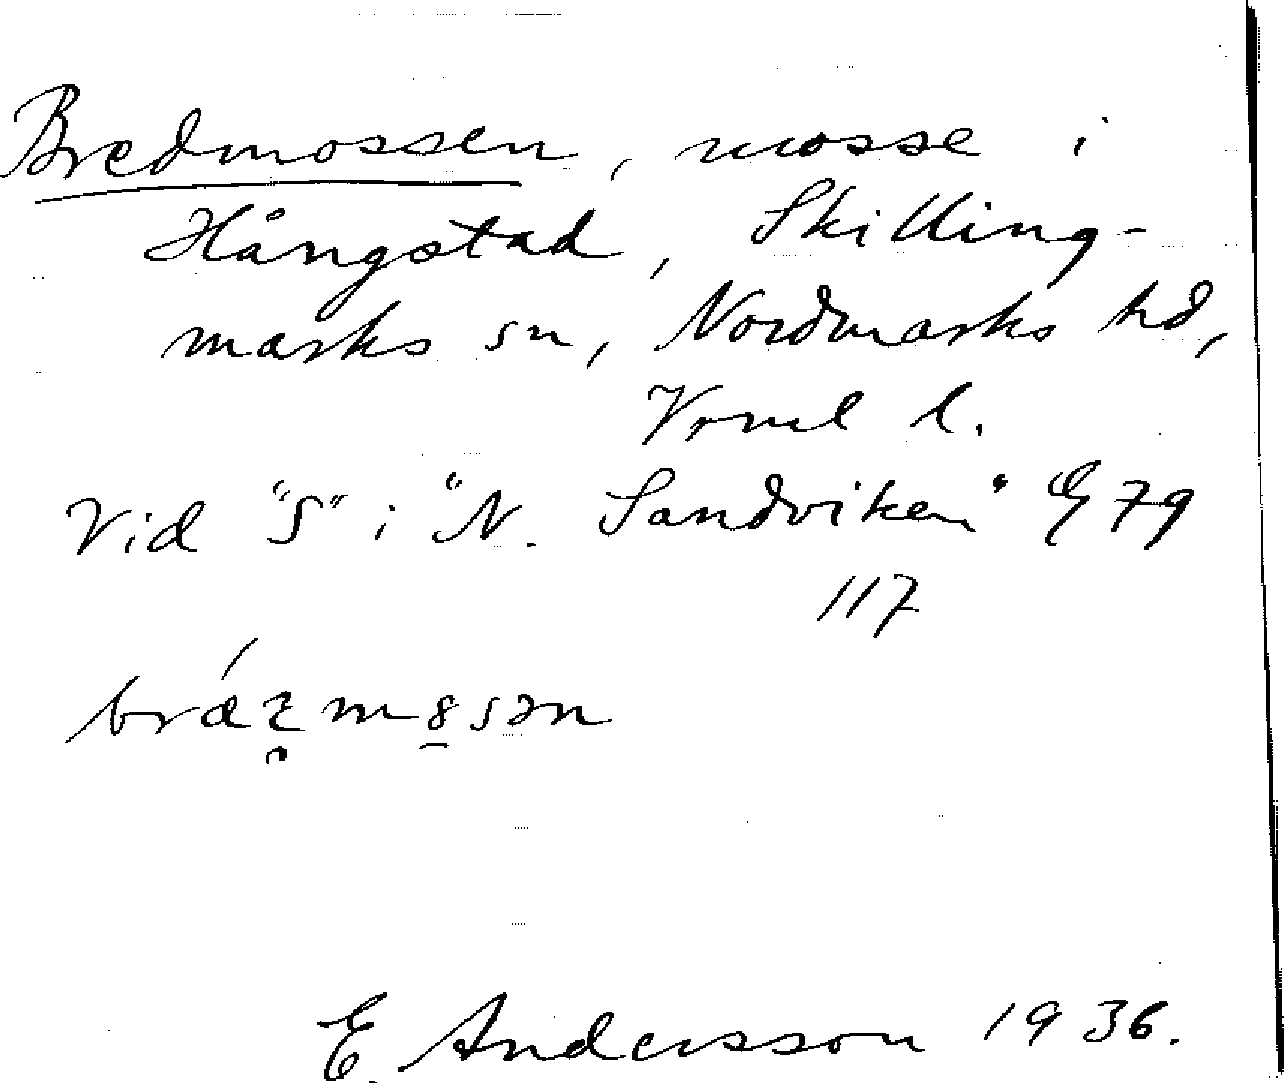 Bredmossen, mosse i
Hångstad, Skilling-
marks sn, Nordmarks hd,
Vrml l.
Vid "S" i "N. Sandviken" E 79
117
E. Andersson 1936.